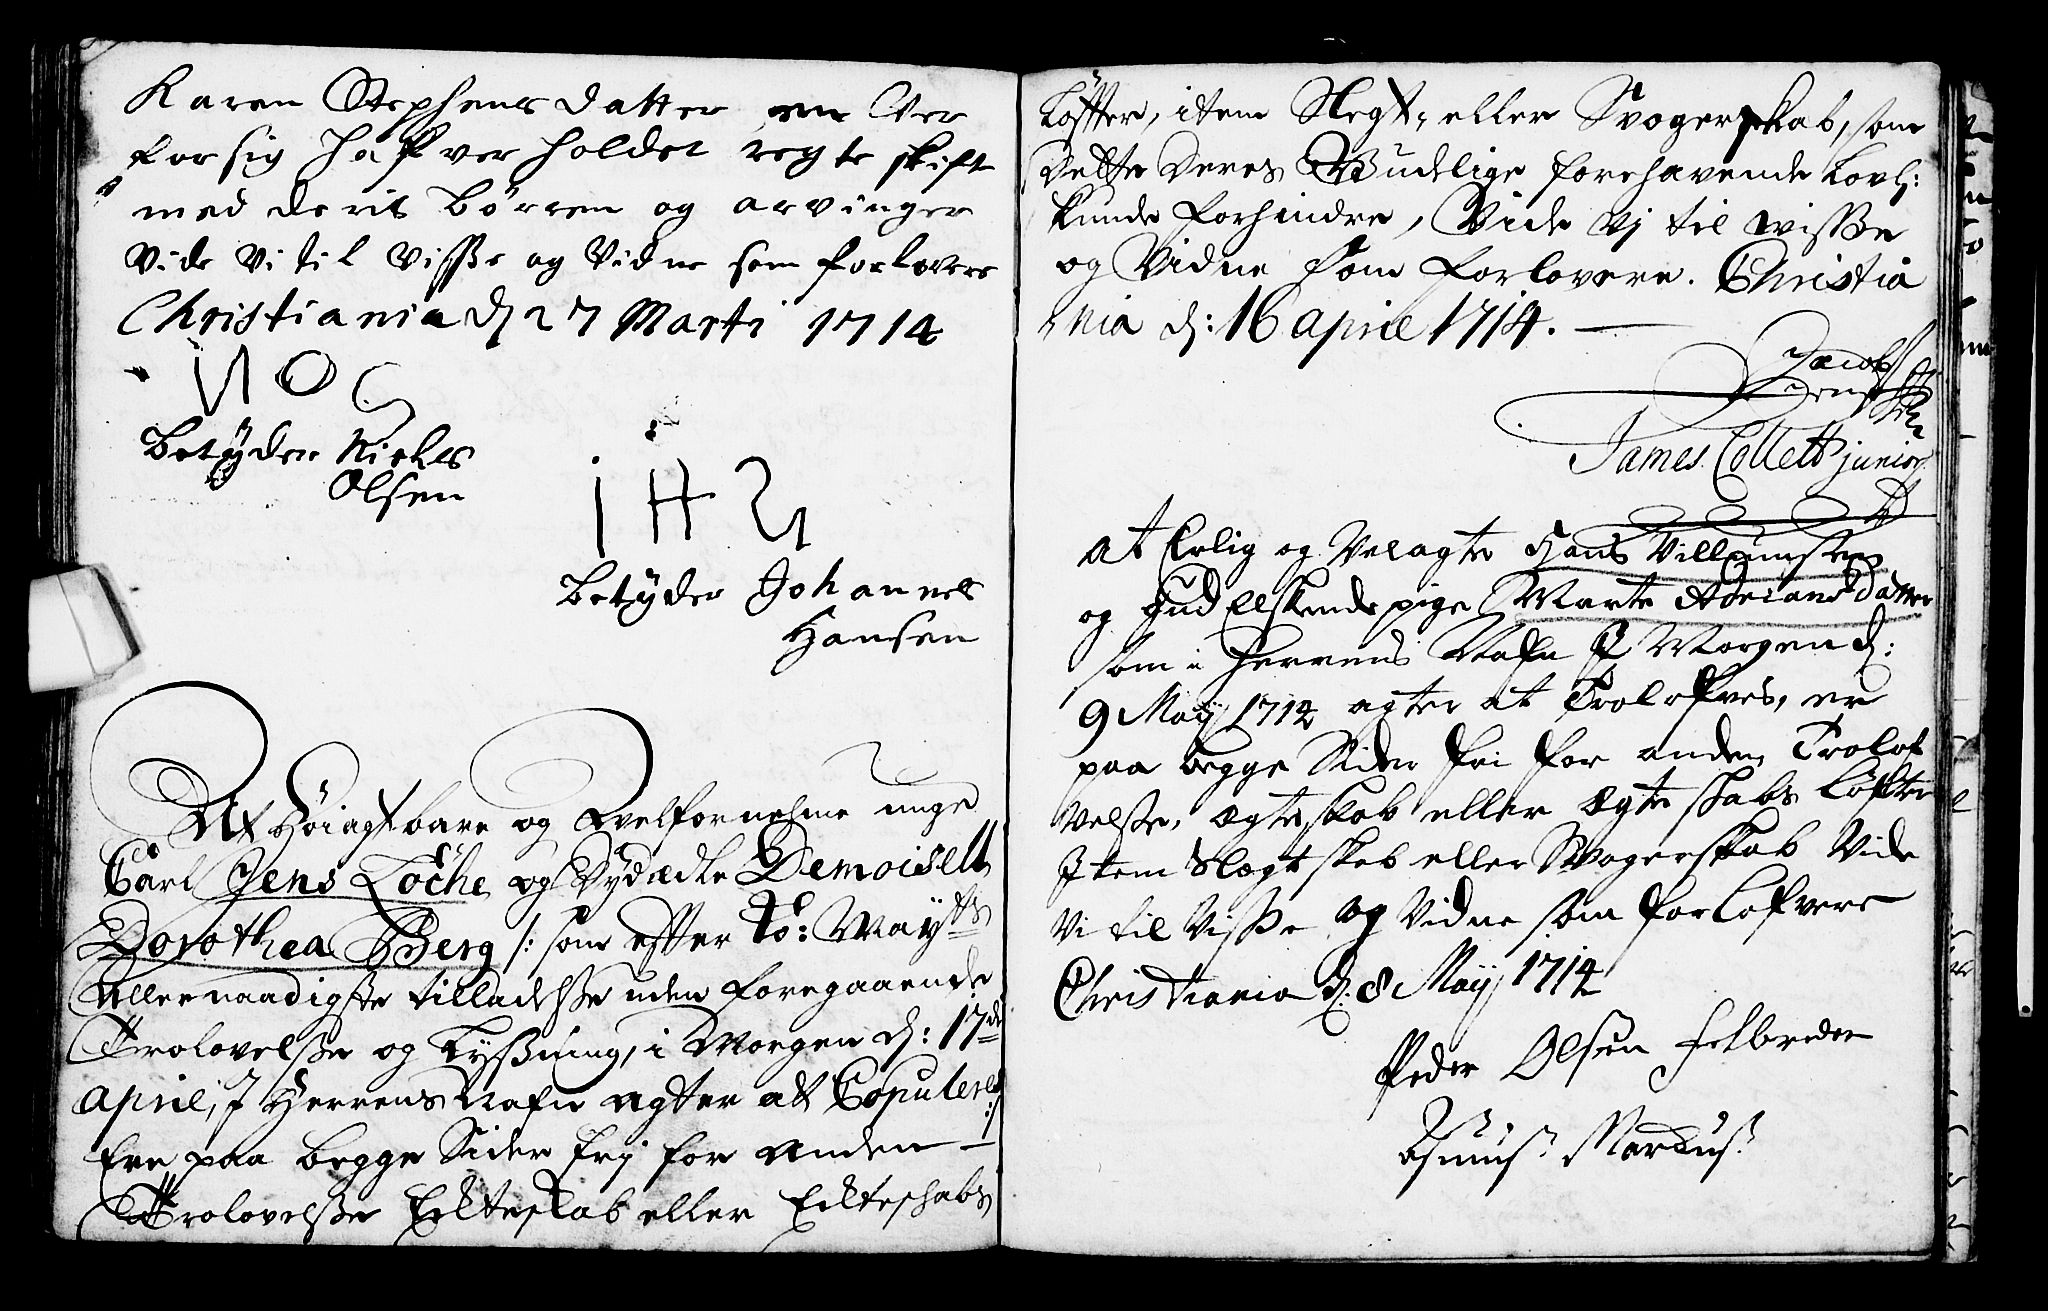 Karen Stephens datter en Ver
for sig hafver holdet regte skift
med deris börren og arvinger
vide vi til visße og vidne som forlovere
Christiania d 27 Marti 1714
NOS
betÿder Niehls
Olsen
iHS
betÿder Johannes
Hansen
At Höiagtbare og Velfornehme unge
Carl Jens Löche og Dydædle Demoiselle
Dorothea Berg /: som efter Ko: Maÿts
Allernaadigste tilladelsße uden foregaaende
Trolovelsße og Lysßning, i Morgen d: 17de
April, J Herrens Nafn agter at Copuleres :/
Ere paa begge Sider frj for anden
Trolovelsße Ecteskab eller Ecteschabs
Löfter, item Slegt- eller Svogerskab, som
Dette Deres Gudelige forehavende Lovl:
kunde forhindre, Vide Vj til wisße
og Vidne som forlovere. Christia
nia d: 16 April 1714.
Jacob
James Collett junior
At Erlig og Velagte Hans Villumsen
og Gud Elskende pige Marte Adrians Datter
som i Herrens Nafn J Morgen d:
9 Maÿ 1714 agter at Trolofves, er
paa begge Sider fri for anden Trolof
velsße, ægteskab eller Ægte skabs Löfter
Jtem Slægtskeb eller Svogerskab Vide
Vi til Visße og Vidne som forlofvere
Christiania d: 8 Maÿ 1714
Peder Olsen Felbreder
Asmus Marcus